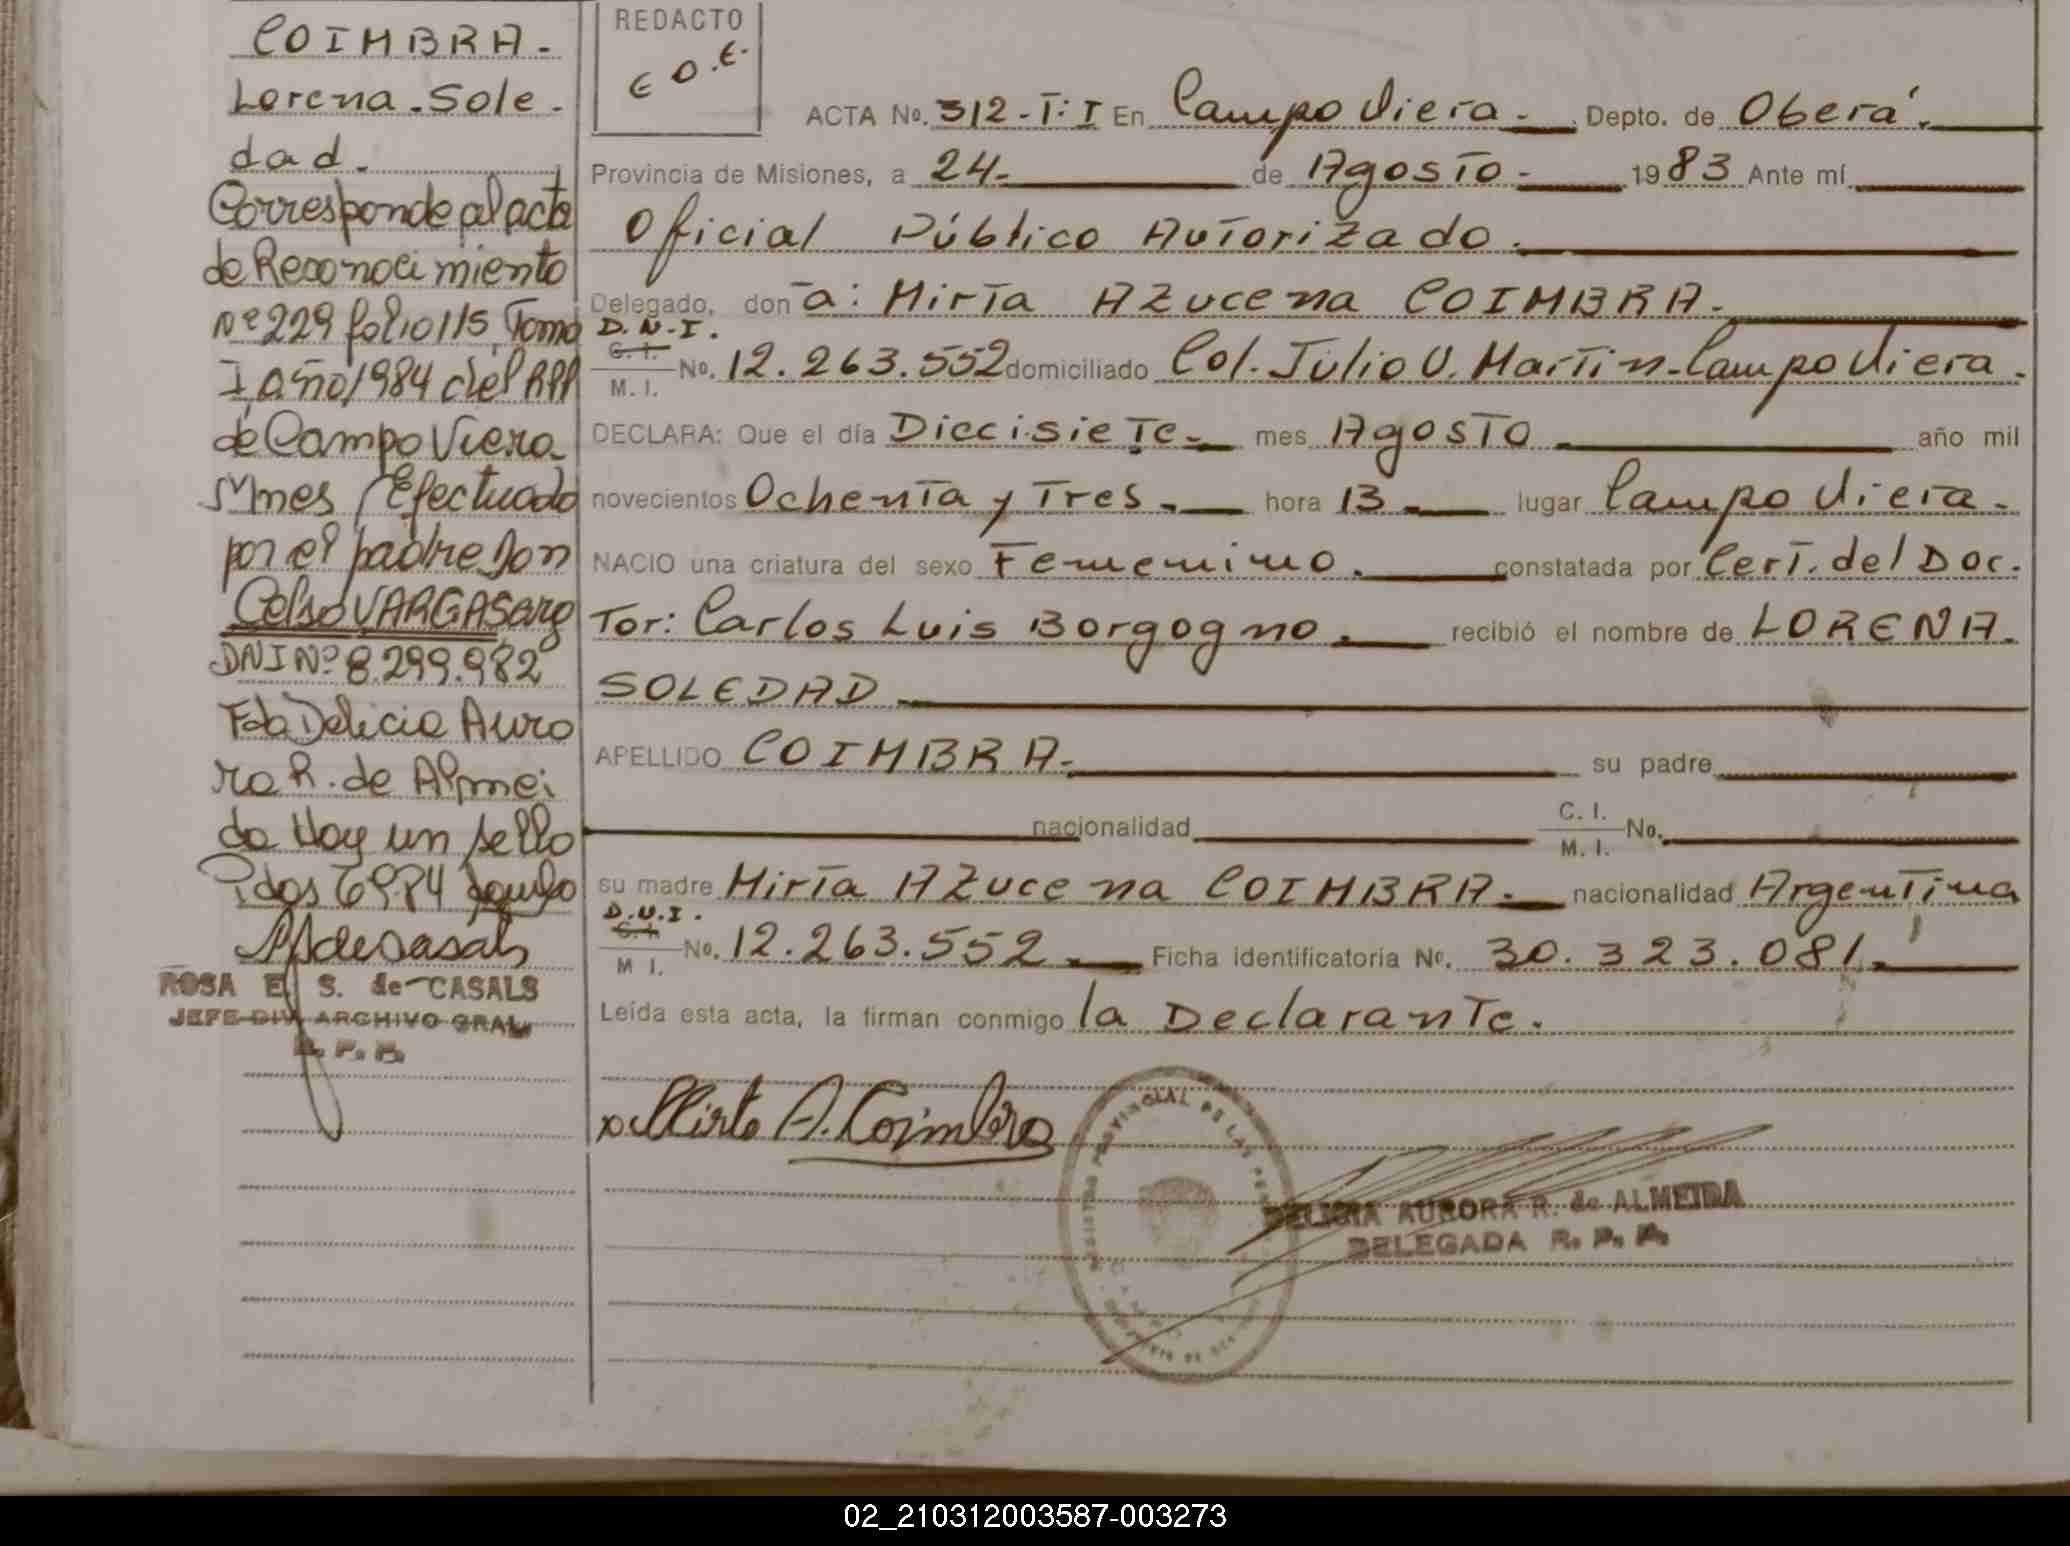 COIMBRA.
Lorena. Sole.
dad.
Corresponde al acta
de Reconocimiento
Nº 229 folio 115 Tomo
I año 1984 del RPP
de Campo Viera
Mnes / Efectuado
por el padre Don
Celso VARGAS
DNI Nº 8.299.982
Fdo Delicia Auro
ra R. de Almei
da Hay un sello
Pdas 6984
ROSA E. S. de CASALS
JEFE DIV. ARCHIVO GRAL.
R. P. P.
REDACTO
ACTA No. 312-T: I En Campo Viera. Depto. de Oberá.
Provincia de Misiones, a 24. de Agosto. 1983 Ante mí
Oficial Público Autorizado.
Delegado, don a: Miría Azucena COIMBRA.
D.N.I.
C.I.
M. I. No. 12.263.552 domiciliado Col. Julio U. Martin. Campo Viera.
DECLARA: Que el día Diecisiete. mes Agosto. año mil
novecientos Ochenta y Tres. hora 13. lugar Campo Viera.
NACIO una criatura del sexo Femenino. constatada por Cert. del Doc.
Tor: Carlos Luis Borgogno. recibió el nombre de LORENA.
SOLEDAD.
APELLIDO COIMBRA. su padre
nacionalidad C. I. M. I. No.
su madre Miría Azucena COIMBRA. nacionalidad Argentina
D.N.I.
C.I.
M I. No. 12.263.552. Ficha identificatoria No. 30.323.081.
Leída esta acta, la firman conmigo la Declarante.
A. Coimbra
DELICIA AURORA R. de ALMEIDA
DELEGADA R. P. P.
02_210312003587-003273